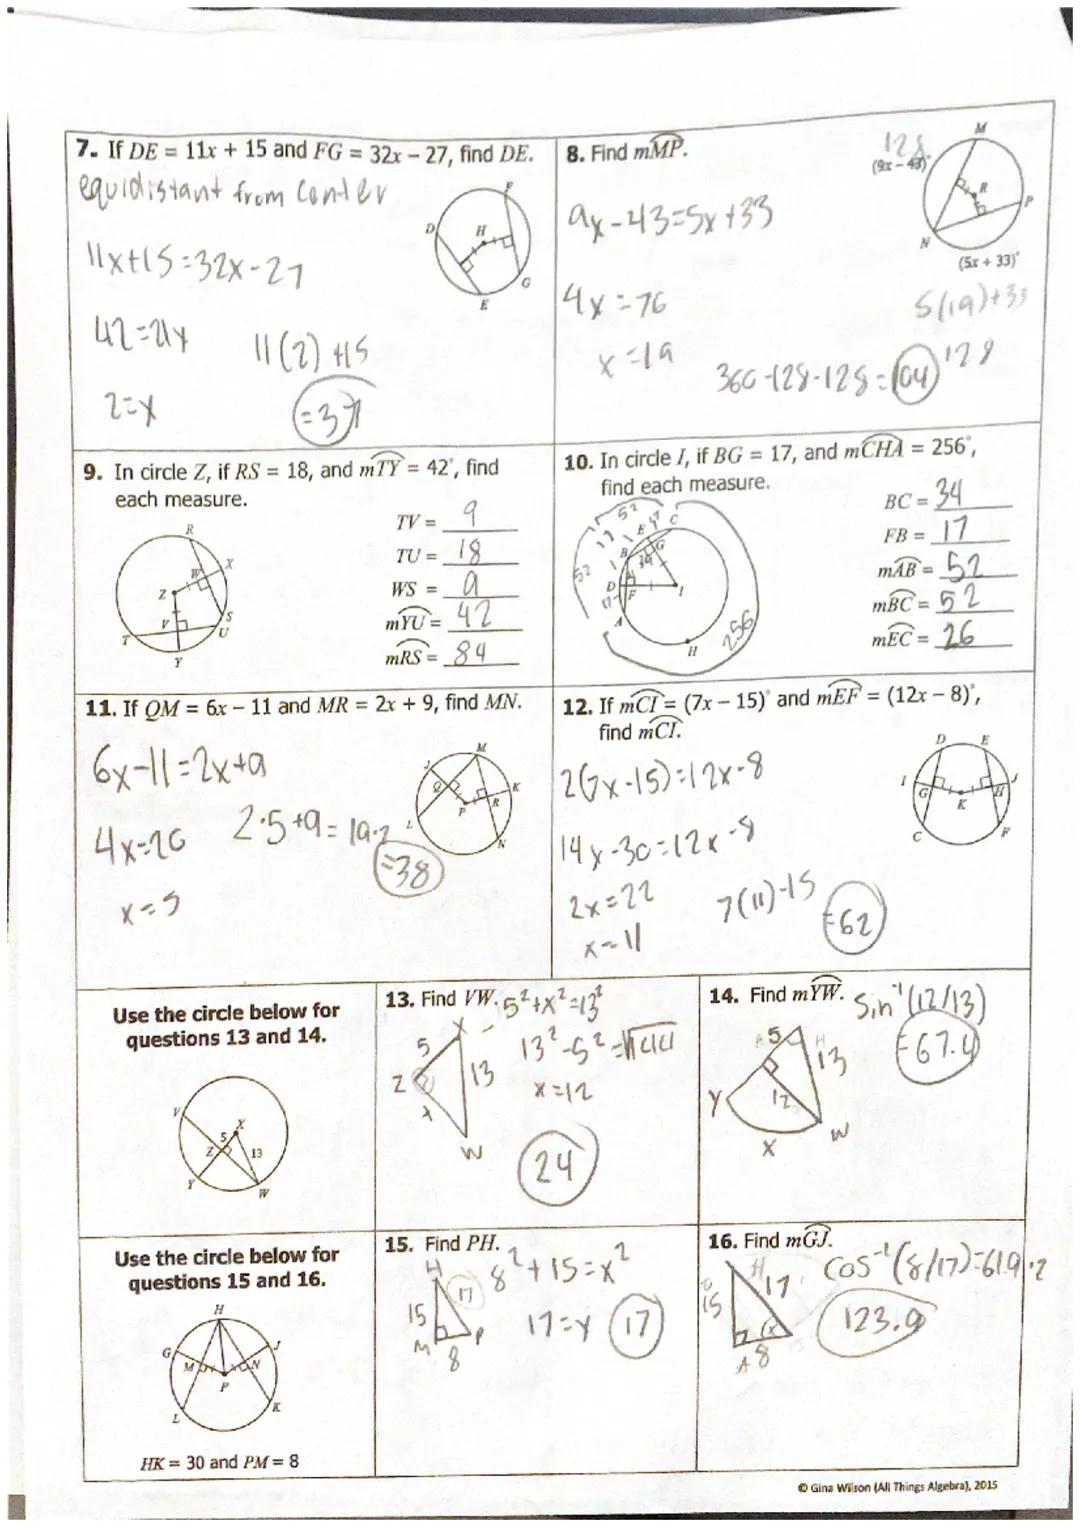 7. If DE = 11x + 15 and FG = 32x – 27, find DE.
equidistant from center
11x+15=32x-27
42=21x
11(2)+15
2=x
=37
D
H
F
G
E
8. Find mMP.
128
(9x – 43)°
9x-43=5x+33
4x=76
x=19
M
R
P
N
(5x + 33)°
5(19)+33
128
360-128-128=104
9. In circle Z, if RS = 18, and mTY = 42°, find
each measure.
TV = 9
TU = 18
WS = 9
mYU = 42
mRS = 84
R
X
W
Z
V
S
T
U
Y
10. In circle I, if BG = 17, and mCHA = 256°,
find each measure.
BC = 34
FB = 17
mAB = 52
mBC = 52
mEC = 26
52
17
C
E
G
B
52
D
F
I
A
H
256
11. If QM = 6x – 11 and MR = 2x + 9, find MN.
6x-11=2x+9
4x=20
2·5+9=19·2
=38
x=5
M
J
Q
K
R
P
L
N
12. If mCI = (7x – 15)° and mEF = (12x – 8)°,
find mCI.
2(7x-15)=12x-8
14x-30=12x-8
2x=22
7(11)-15
=62
x=11
D
E
I
J
G
H
K
C
F
Use the circle below for
questions 13 and 14.
V
X
5
Z
13
Y
W
13. Find VW.
5²+x²=13²
13²-5²=√144
x=12
X
5
Z
13
x
W
24
14. Find mYW.
Sin⁻¹(12/13)
=67.4
5
13
12
Y
W
X
Use the circle below for
questions 15 and 16.
H
G
J
M
N
P
L
K
HK = 30 and PM = 8
15. Find PH.
8²+15=x²
H
17
15
17=x
17
M
P
8
16. Find mGJ.
cos⁻¹(8/17)=61.9·2
123.9
H
17
15
x
8
© Gina Wilson (All Things Algebra), 2015